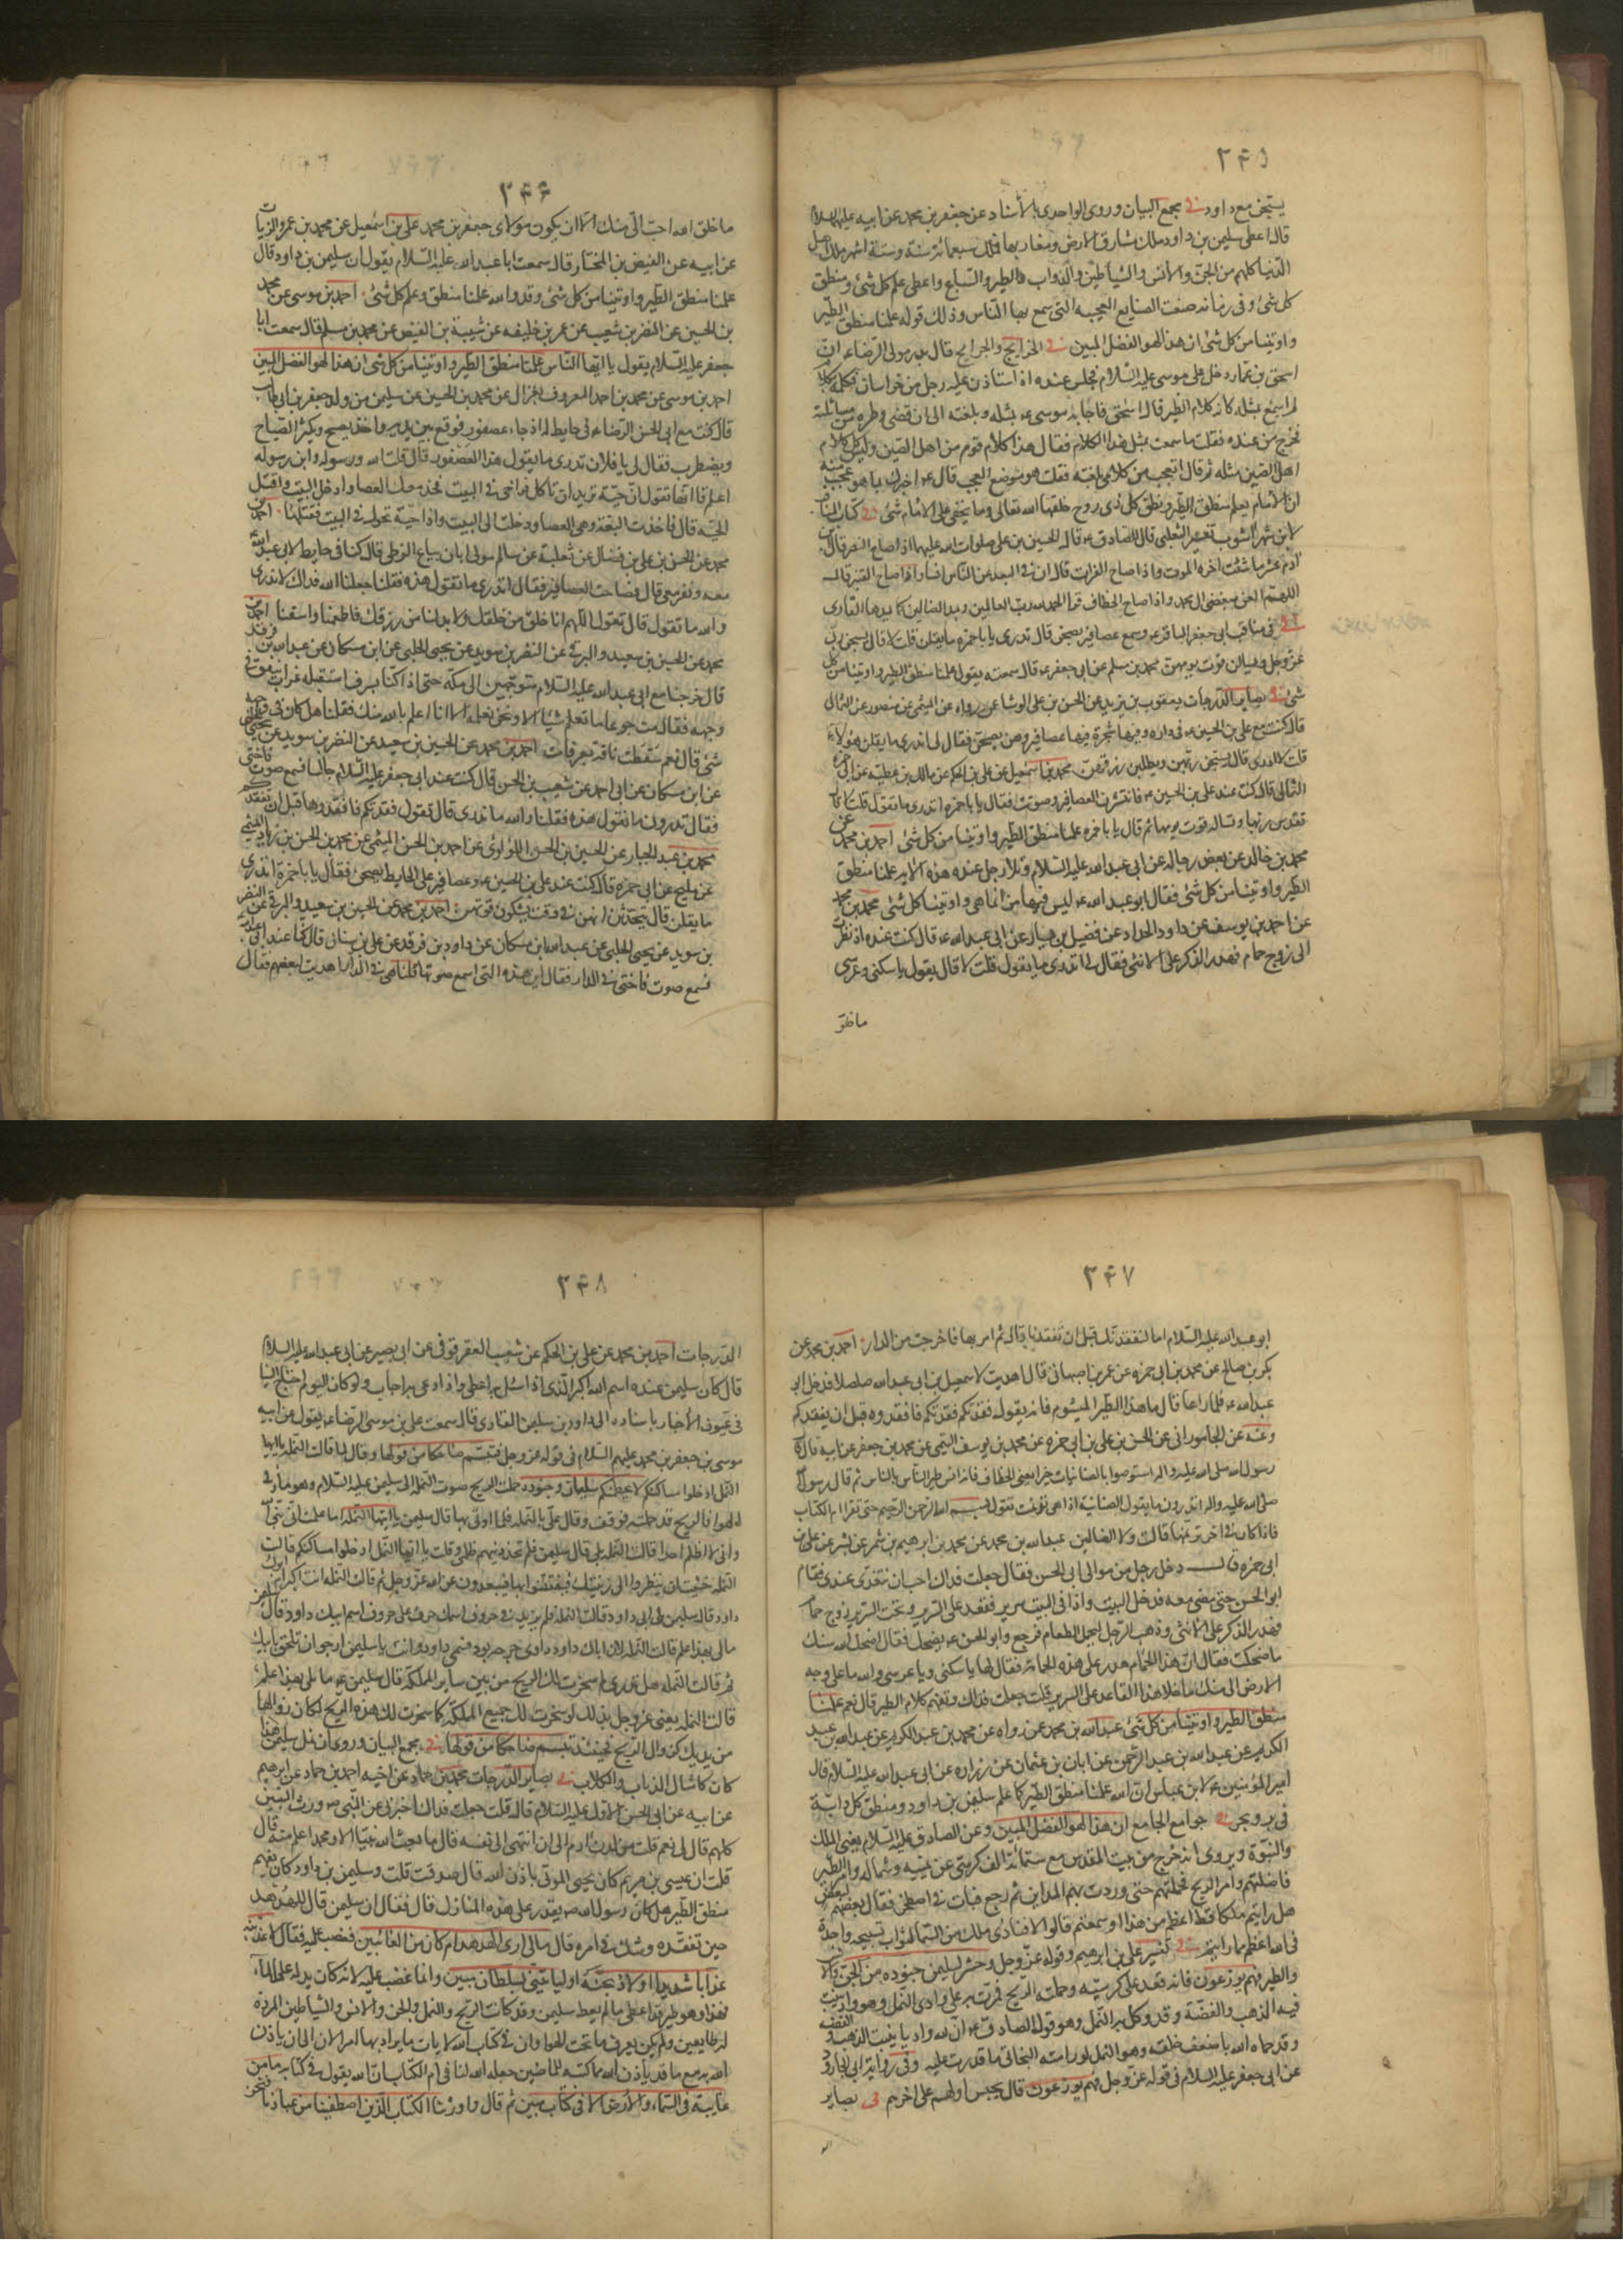 ۲۴۵
يسبحن مع داود فى مجمع البيان وروى الواحدى بالأسناد عن جعفر بن محمد عن ابيه عليهما السلام
قال اعطى سليمن بن داود ملك مشارق الارض ومغاربها فملك سبعمائة سنة وستة اشهر ملك اهل
الدنيا كلهم من الجن والانس والشياطين والدواب والطير والسباع واعطى علم كل شئ ومنطق
كل شئ وفى زمانه صنعت الصنايع العجيبة التى سمع بها الناس وذلك قوله علمنا منطق الطير
واوتينا من كل شئ ان هذا لهو الفضل المبين فى الخرايج والجرايح قال بدر مولى الرضاء ان
اسحق بن عمار دخل على موسى عليه السلام فجلس عنده اذ استاذن عليه رجل من خراسان فكلمه بكلام
لم اسمع بمثله كانه كلام الطير قال اسحق فاجابه موسى ع بمثله وبلغته الى ان قضى وطره من مسائلته
فخرج من عنده فقلت ما سمعت بمثل هذا الكلام فقال هذا كلام قوم من اهل الصين وليس كل كلام
اهل الصين مثله ثم قال اتعجب من كلامى بلغته فقلت هو موضع العجب قال ع اخبرك بما هو عجب منه
ان الامام يعلم منطق الطير ونطق كل ذى روح خلقها الله تعالى وما يخفى على الامام شئ فى كتاب المناقب
لابن شهراشوب تفسير الثعلبى قال الصادق ع قال الحسين بن على صلوات الله عليهما اذا صاح النسر قال ابن
ادم عش ما شئت اخره الموت واذا صاح الغراب قال ان فى البعد عن الناس انسا واذا صاح القنبر قال
اللهم العن مبغضى ال محمد واذا صاح الخطاف قرا الحمد لله رب العالمين ويمد الضالين كما يمدها القارى
فى مناقب ابى جعفر الباقر ع وسمع عصافير يصحن قال تدرى يا با حمزه ما يقلن قلت لا قال يسبحن ربى
عز وجل ويسالن قوت يومهن محمد بن مسلم عن ابى جعفر ع قال سمعته يقول علمنا منطق الطير واوتينا من كل
شئ فى بصاير الدرجات يعقوب بن يزيد عن الحسن بن على الوشا عمن رواه عن الميثمى عن منصور عن الثمالى
قال كنت مع على بن الحسين ع فى داره وفيها شجرة فيها عصافير وهن يصحن فقال لى اتدرى ما يقلن هؤلاء
قلت لا ادرى قال يسبحن ربهن ويطلبن رزقهن محمد بن اسمعيل عن على بن الحكم عن مالك بن عطيه عن ابى حمزه
الثمالى قال كنت عند على بن الحسين ع فانتشرت العصافير وصوتت فقال يا با حمزه اتدرى ما تقول قلت لا قال
تقدس ربها وتساله قوت يومها ثم قال يا با حمزه علمنا منطق الطير واوتينا من كل شئ احمد بن محمد عن
محمد بن خالد عن بعض رجاله عن ابى عبد الله عليه السلام وتلا رجل عنده هذه الآيه علمنا منطق
الطير واوتينا من كل شئ فقال ابو عبد الله ع ليس فيها من انما هى واوتينا كل شئ محمد بن محمد
عن احمد بن يوسف عن داود الحداد عن فضيل بن يسار عن ابى عبد الله ع قال كنت عنده اذ نظرت
الى زوج حمام فهدر الذكر على الانثى فقال لى اتدرى ما يقول قلت لا قال يقول يا سكنى وعرسى
ما خلق
۲۴۶
ما خلق الله احب الى منك الا ان يكون مولاى جعفر بن محمد على بن اسمعيل عن محمد بن عمرو الزيات
عن ابيه عن الفيض بن المختار قال سمعت ابا عبد الله عليه السلام يقول ان سليمن بن داود قال
علمنا منطق الطير واوتينا من كل شئ وقد والله علمنا منطق وعلم كل شئ احمد بن موسى عن محمد
بن الحسين عن النضر بن شعيب عن عمر بن خليفه عن شيبة بن الفيض عن محمد بن مسلم قال سمعت ابا
جعفر عليه السلام يقول يا ايها الناس علمنا منطق الطير واوتينا من كل شئ ان هذا لهو الفضل المبين
احمد بن موسى عن محمد بن احمد المعروف بغزال عن محمد بن الحسين عن سليمن من ولد جعفر بن ابى طالب
قال كنت مع ابى الحسن الرضاء فى حايط له اذ جاء عصفور فوقع بين يديه واخذ يصيح ويكثر الصياح
ويضطرب فقال لى يا فلان تدرى ما يقول هذا العصفور قال قلت الله ورسوله وابن رسوله
اعلم قال انها تقول ان حية تريد ان تاكل فراخى فى البيت فخذ معك العصا وادخل البيت واقتل
الحية قال فاخذت البقعة وهى العصا ودخلت الى البيت واذا حية تجول فى البيت فقتلها احمد بن
محمد عن الحسن بن على بن فضال عن ثعلبة عن سالم مولى ابان بياع الزطى قال كنا فى حايط لابى عبد الله
معه ونفر معى قال فصاحت العصافير فقال اتدرى ما تقول هذه فقلنا جعلنا الله فداك لا ندرى
والله ما تقول قال تقول اللهم انا خلق من خلقك ولا بد لنا من رزقك فاطعمنا واسقنا احمد بن
محمد عن الحسين بن سعيد والبرقى عن النضر بن سويد عن يحيى الحلبى عن ابن مسكان عن عبد الله بن فرقد
قال خرجنا مع ابى عبد الله عليه السلام متوجهين الى مكه حتى اذا كنا بسرف استقبله غراب ينعق فى
وجهه فقال مت جوعا ما تعلم شيئا الا ونحن نعلمه الا انا اعلم بالله منك فقلنا هل كان فى وجهه
شئ قال نعم سقطت ناقة بعرفات احمد بن محمد عن الحسين بن سعيد عن النضر بن سويد عن يحيى
عن ابن مسكان عن ابى احمد عن شعيب بن الحسن قال كنت عند ابى جعفر عليه السلام جالسا فسمع صوت فاختى
فقال تدرون ما تقول هذه فقلنا والله ما ندرى قال تقول فقدتكم فافقدوها قبل ان تفقدكم
محمد بن عبد الجبار عن الحسين بن الحسن اللؤلؤى عن احمد بن الحسن الميثمى عن محمد بن الحسن بن زياد الميثمى
عن مليح عن ابى حمزه قال كنت عند على بن الحسين ع وعصافير على الحايط يصحن فقال يا با حمزة اتدرى
ما يقلن قال يتحدثن انهن فى وقت يشكون قوتهن احمد بن محمد عن الحسين بن سعيد والبرقى عن النضر
بن سويد عن يحيى الحلبى عن عبد الله بن مسكان عن داود بن فرقد عن على بن سنان قال كنا عند ابى عبد الله
فسمع صوت فاختى فى الدار فقال اين هذه التى اسمع صوتها قلنا هى فى الدار اهديت لبعضهم فقال
۲۴۷
ابو عبد الله عليه السلام اما لنفقدنك قبل ان تفقدنا قال ثم امر بها فاخرجت من الدار احمد بن محمد عن
بكر بن صالح عن محمد بن ابى حمزه عن عمر بن اصبهانى قال اهديت لاسمعيل بن ابى عبد الله صلصلا فدخل ابو
عبد الله ع فلما راها قال ما هذا الطير الميشوم فانه يقول فقدتكم فقدتكم فافقدوه قبل ان يفقدكم
وعنه عن الجامورانى عن الحسن بن على بن ابى حمزه عن محمد بن يوسف التيمى عن محمد بن جعفر عن ابيه قال قال
رسول الله صلى الله عليه واله استوصوا بالصنانيات خيرا يعنى الخطاف فانه انس طير الناس بالناس ثم قال رسول الله
صلى الله عليه واله اتدرون ما يقول الصنانية اذا هى ترنمت تقول بسم الله الرحمن الرحيم حتى تقرا ام الكتاب
فاذا كان فى اخر ترنمها قالت ولا الضالين عبد الله بن محمد عن محمد بن ابرهيم بن شمر عن بشر عن على بن
ابى حمزه قال دخل رجل من موالى ابى الحسن فقال جعلت فداك احب ان تتغدى عندى فقام
ابو الحسن حتى مضى معه فدخل البيت واذا فى البيت سرير فقعد على السرير وتحت السرير زوج حمام
فهدر الذكر على الانثى وذهب الرجل ليحمل الطعام فرجع وابو الحسن ع يضحك فقال اضحك الله سنك
مما ضحكت فقال ان هذا الحمام هدر على هذه الحمامة فقال لها يا سكنى ويا عرسى والله ما على وجه
الارض احب الى منك ما خلا هذا القاعد على السرير قلت جعلت فداك وتفهم كلام الطير قال نعم علمنا
منطق الطير واوتينا من كل شئ عبد الله بن محمد عمن رواه عن محمد بن عبد الكريم عن عبد الله بن عبد
الكريم عن عبد الله بن عبد الرحمن عن ابان بن عثمان عن زراره عن ابى عبد الله عليه السلام قال
امير المؤمنين ع لابن عباس ان الله علمنا منطق الطير كما علم سليمن بن داود ومنطق كل دابة
فى بر وبحر فى جوامع الجامع ان هذا لهو الفضل المبين وعن الصادق عليه السلام يعنى الملك
والنبوة ويروى انه خرج من بيت المقدس مع ستمائة الف كرسى عن يمينه وشماله وامر الطير
فاظلتهم وامر الريح فحملتهم حتى وردت بهم المداين ثم رجع فبات فى اصطخر فقال بعضهم لبعض
هل رايتم ملكا قط اعظم من هذا او سمعتم قالوا لا فنادى ملك من السماء لثواب تسبيحة واحدة
فى الله اعظم مما رايتم فى تفسير على بن ابرهيم وقوله عز وجل وحشر لسليمن جنوده من الجن والانس
والطير فهم يوزعون فانه قعد على كرسيه وحملته الريح فمرت به على وادى النمل وهو واد ينبت
فيه الذهب والفضة وقد وكل به النمل وهو قول الصادق ع ان لله واديا ينبت الذهب والفضة
وقد حماه الله باضعف خلقه وهو النمل لو رامته البخاتى ما قدرت عليه وفى رواية ابى الجارود
عن ابى جعفر عليه السلام فى قوله عز وجل فهم يوزعون قال يحبس اولهم على اخرهم فى بصاير
۲۴۸
الدرجات احمد بن محمد عن على بن الحكم عن شعيب العقرقوفى عن ابى بصير عن ابى عبد الله عليه السلام
قال كان سليمن عنده اسم الله اكبر الذى اذا سئل به اعطى واذا دعى به اجاب ولو كان اليوم احتاج الينا
فى عيون الأخبار باسناده الى داود بن سليمن الغازى قال سمعت على بن موسى الرضاء ع يقول عن ابيه
موسى بن جعفر بن محمد عليهم السلام فى قوله عز وجل فتبسم ضاحكا من قولها وقال لما قالت النملة يا ايها
النمل ادخلوا مساكنكم لا يحطمنكم سليمان وجنوده حملت الريح صوت النملة الى سليمن عليه السلام وهو مار فى
الهوا والريح قد حملته فوقف وقال على بالنملة فلما اوتى بها قال سليمن يا ايتها النملة اما علمت انى نبى الله
وانى لا اظلم احدا قالت النملة بلى قال سليمن فلم تحذرينهم ظلمى وقلت يا ايها النمل ادخلوا مساكنكم قالت
النملة خشيت ان ينظروا الى زينتك فيفتتنوا بها فيبعدون عن الله عز وجل ثم قالت النملة انت اكبر ام ابوك
داود قال سليمن بل ابى داود قالت النملة فلم يزيد فى حروف اسمك حرف على حروف اسم ابيك داود قال سليمن
مالى بهذا علم قالت النملة لان اباك داود داوى جرحه بود فسمى داود وانت يا سليمن ارجو ان تلحق بابيك
ثم قالت النملة هل تدرى لم سخرت لك الريح من بين ساير المملكة قال سليمن ع ما لى بهذا علم
قالت النملة يعنى عز وجل بذلك لو سخرت لك جميع المملكة كما سخرت لك هذه الريح لكان زوالها
من يديك كزوال الريح فحينئذ تبسم ضاحكا من قولها فى مجمع البيان وروى ان نمل سليمن هذا
كان كامثال الذباب والكلاب فى بصاير الدرجات محمد بن حماد عن اخيه احمد بن حماد عن ابرهيم
عن ابيه عن ابى الحسن الاول عليه السلام قال قلت جعلت فداك اخبرنى عن النبى ص ورث النبيين
كلهم قال لى نعم قلت من لدن ادم الى ان انتهى الى نفسه قال ما بعث الله نبيا الا ومحمد اعلم منه قال
قلت ان عيسى بن مريم كان يحيى الموتى باذن الله قال صدقت قلت وسليمن بن داود كان يفهم
منطق الطير هل كان رسول الله ص يقدر على هذه المنازل قال فقال ان سليمن قال للهدهد
حين تفقده وشك فى امره قال مالى لا ارى الهدهد ام كان من الغائبين فغضب عليه فقال لاعذبنه
عذابا شديدا او لاذبحنه او لياتينى بسلطان مبين وانما غضب عليه لانه كان يدله على الماء
فهذا وهو طير قد اعطى ما لم يعط سليمن وقد كانت الريح والنمل والجن والانس والشياطين المردة
له طايعين ولم يكن يعرف ما تحت الهوا وان فى كتاب الله لايات ما يراد بها امر الا ان ياذن
الله به مع ما قد ياذن الله مما كتبه للماضين جعله الله لنا فى ام الكتاب ان الله يقول فى كتابه ما من
غايبة فى السماء والارض الا فى كتاب مبين ثم قال واورثنا الكتاب الذين اصطفينا من عبادنا فنحن